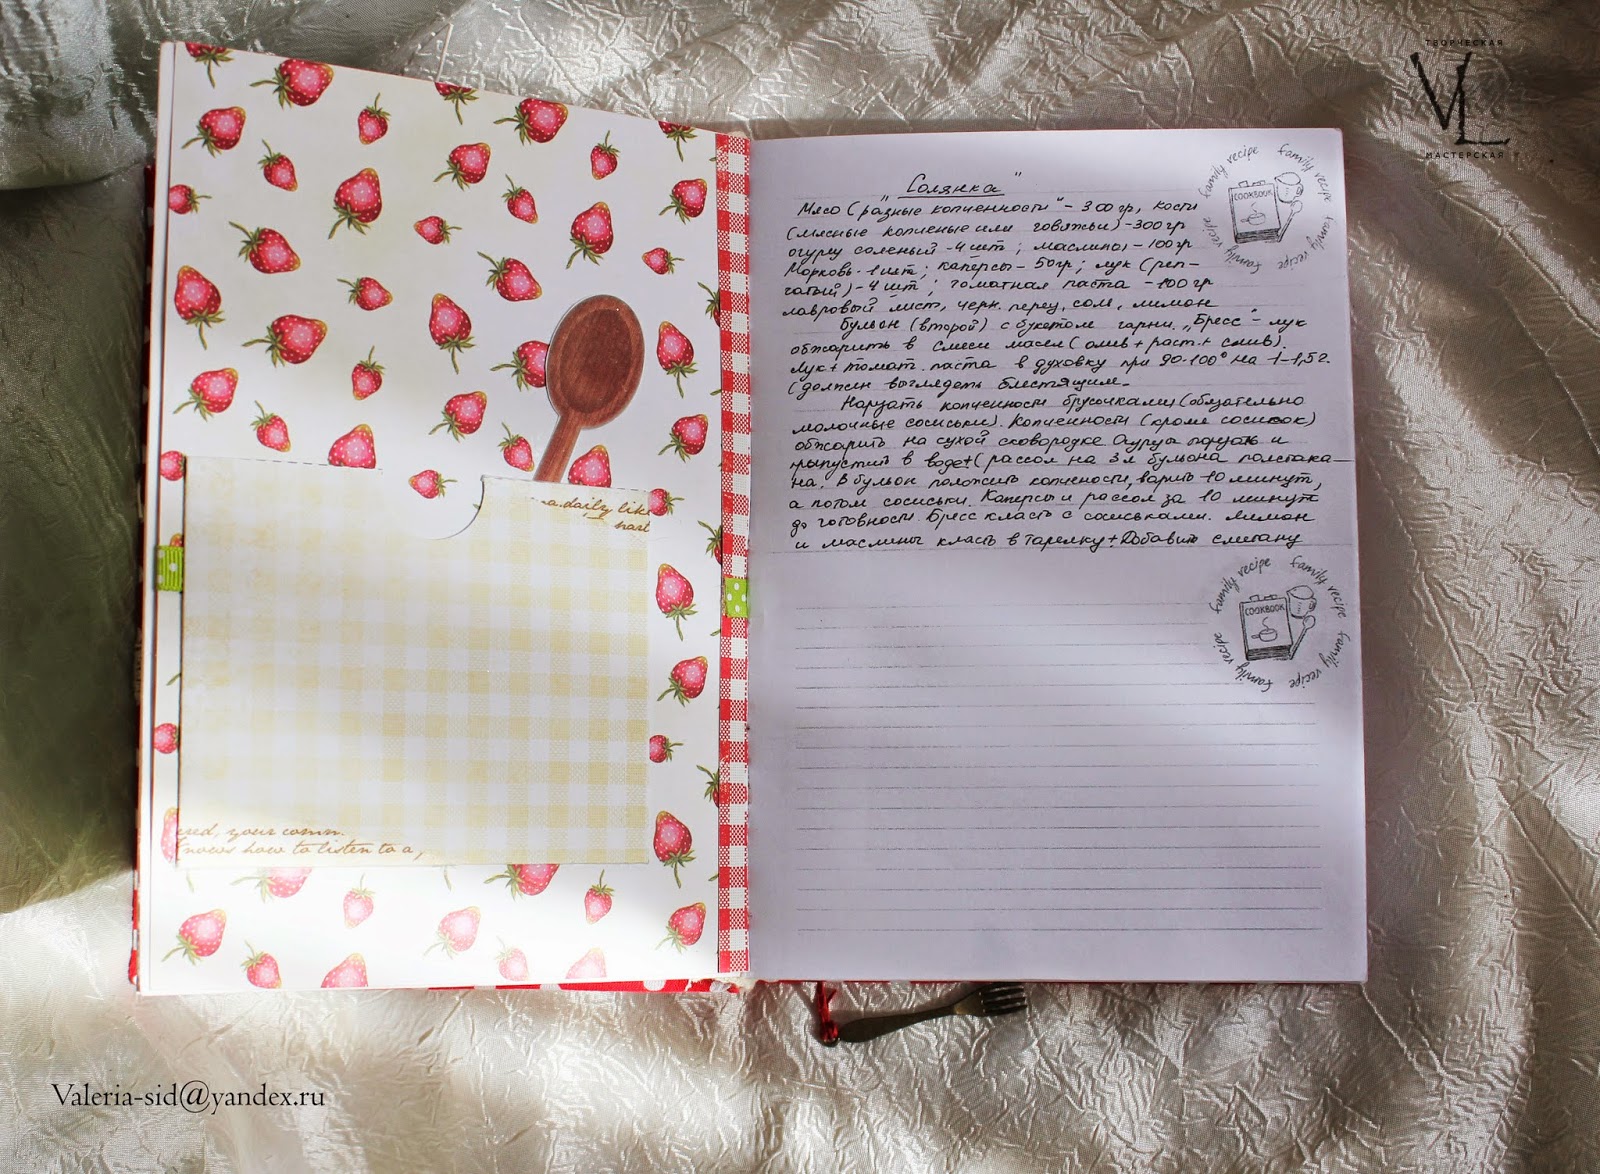 ТВОРЧЕСКАЯ
VL
МАСТЕРСКАЯ
a daily like
ured, your comm.
knows how to listen to a,
"Солянка"
Мясо ("разные копченности" - 300 гр, кости
(мясные копченые или говяжьи) - 300 гр
огурец соленый - 4 шт ; маслины - 100 гр
Морковь - 1 шт ; каперсы - 50 гр ; лук (реп-
чатый) - 4 шт ; томатная паста - 100 гр
лавровый лист, черн. перец, соль, лимон
Бульон (второй) с букетом гарни. "Бресс" - лук
обжарить в смеси масел (олив + раст. + слив).
Лук + томат. паста в духовку при 90-100° на 1-1,5 г.
(должен выглядеть блестящим.
Нарезать копченности брусочками (обязательно
молочные сосиськи). Копченности (кроме сосисок)
обжарить на сухой сковородке Огурцы порезать и
припустить в воде + (рассол на 3 л бульона полстака-
на. В бульон положить копчености, варить 10 минут,
а потом сосиськи. Каперсы и рассол за 10 минут
до готовности. Бресс класть с сосиськами. Лимон
и маслины класть в тарелку + Добавить сметану
family recipe family recipe family recipe family recipe
COOKBOOK
family recipe family recipe family recipe family recipe
COOKBOOK
Valeria-sid@yandex.ru